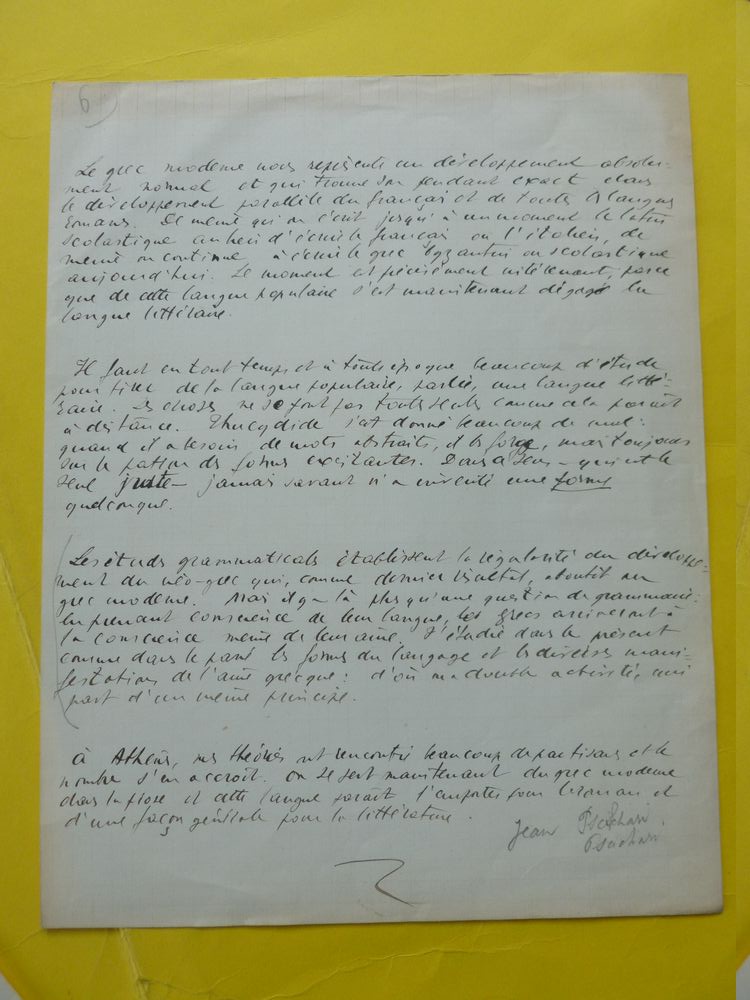 6)
Le grec moderne nous représente un développement absolu-
ment normal et qui trouve son pendant exact dans
le développement parallèle du français et de toutes les langues
romans. De même qu'on écrit jusqu'à un moment le latin
scolastique au lieu d'écrire le français ou l'italien, de
même on continue à écrire le grec byzantin ou scolastique
aujourd'hui. Le moment est précisément intéressant, parce
que de cette langue populaire s'est maintenant dégagé la
langue littéraire.
Il faut en tout temps et à toute époque beaucoup d'étude
pour tirer de la langue populaire, parlée, une langue litté-
raire. Les choses ne se font pas toutes seules comme cela paraît
à distance. Thucydide s'est donné beaucoup de mal:
quand il a besoin de mots abstraits, il les forge, mais toujours
sur le patron des formes existantes. Dans ce sens – qui est le
seul juste – jamais savant n'a inventé une forme
quelconque.
Les études grammaticales établissent la régularité du dévelope-
ment du néo-grec qui, comme dernier résultat, aboutit au
grec moderne. Mais il y a là plus qu'une question de grammaire:
en prenant conscience de leur langue, les grecs arriveront à
la conscience même de leur âme. J'étudie dans le présent
comme dans le passé les formes du langage et les diverses mani-
festations de l'âme grecque: d'où ma double activité, qui
part d'un même principe.
À Athènes, mes théories ont rencontré beaucoup de partisans et le
nombre s'en accroît. On se sert maintenant du grec moderne
dans la prose et cette langue paraît l'emporter pour le roman et
d'une façon générale pour la littérature.
Jean Psichari.
Psichari